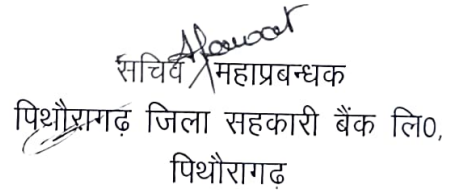 सचिव / महाप्रबन्धक
पिथौरागढ़ जिला सहकारी बैंक लि0,
पिथौरागढ़